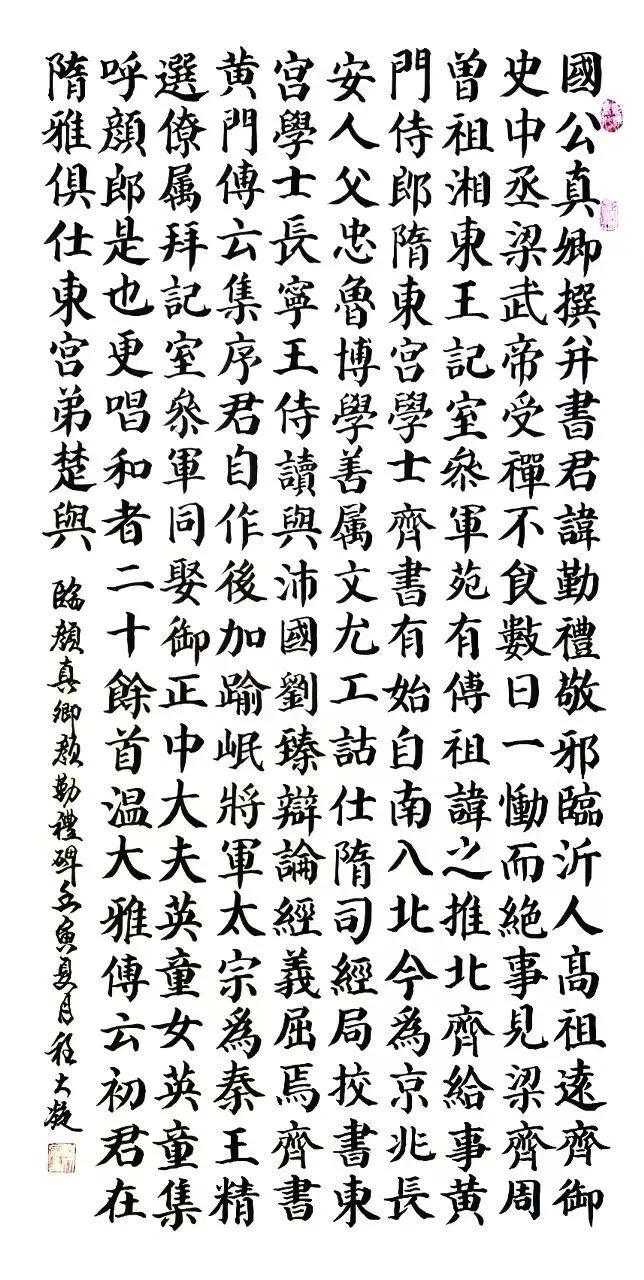 國公真卿撰并書君諱勤禮敬邪臨沂人髙祖逺齊御
史中丞梁武帝受禪不食數日一慟而絶事見梁齊周
曽祖湘東王記室叅軍苑有傳祖諱之推北齊給事黄
門侍郎隋東宫學士齊書有始自南入北今為京兆長
安人父忠魯博學善属文尤工詁仕隋司經局挍書東
宫學士長寧王侍讀與沛國劉臻辯論經義屈焉齊書
黄門傳云集序君自作後加踰岷將軍太宗為秦王精
選僚属拜記室叅軍同娶御正中大夫英童女英童集
呼顔郎是也更唱和者二十餘首温大雅傳云初君在
隋雅俱仕東宫弟楚與
臨顔真卿顔勤禮碑夏月程大凝